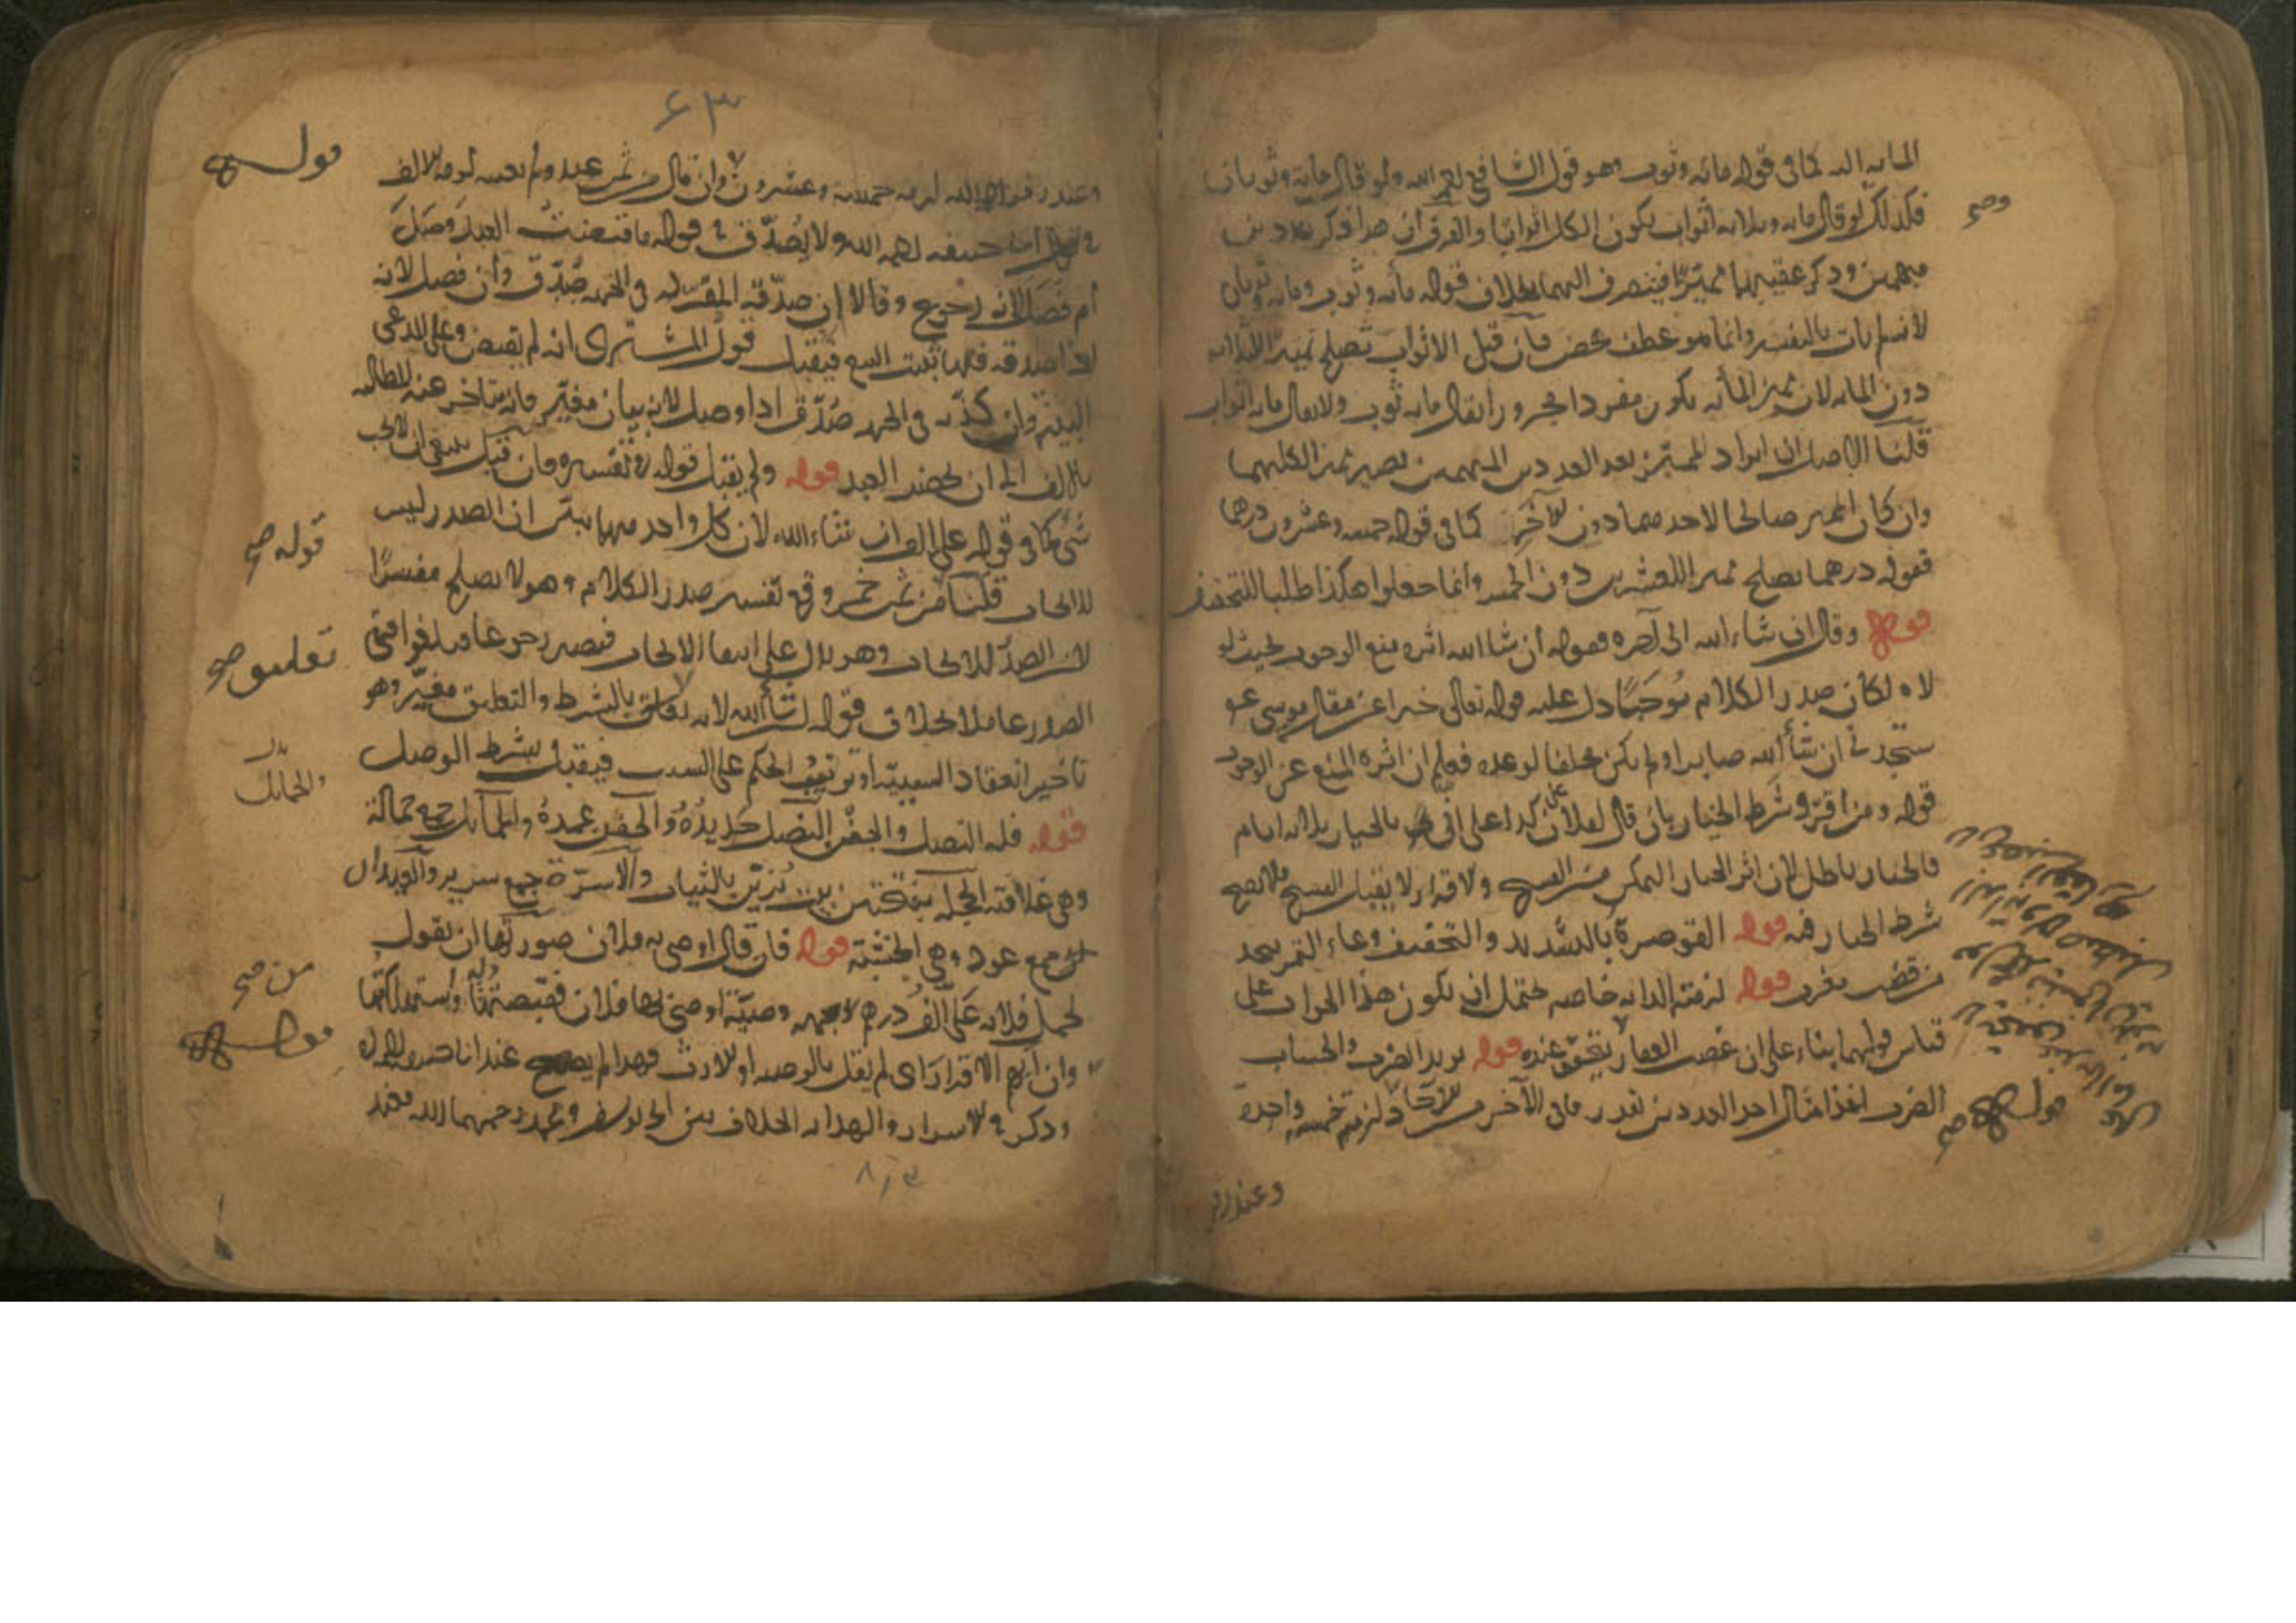 المايه اليه كما فى قوله مائه وثوب وهو قول الشافعى رحمه الله ولو قال مائة وثوبان
فكذلك لو قال مايه وثلاثه اثواب يكون الكل اثوابا والفرق ان هذا ذكر عددين
مبهمين وذكر عقيبهما مميّزا فينصرف اليهما بخلاف قوله مائه وثوب ومايه وثوبان
لانه لم يات بالتفسير وانما هو عطف محض فان قيل الاثواب تصلح تميزا للثلاثه
دون المايه لان مميز المأيه يكون مفردا مجرورا يقال مايه ثوب ولا يقال مايه اثواب
قلنا الاصل ان ايراد المميّز بعد العددين المبهمين يصير مميزا لكليهما
وان كان المميز صالحا لاحدهما دون الآخر كما فى قوله خمسه وعشرون درهما
فقوله درهما يصلح مميزا للعشرين دون الخمسه وانما جعلوا هكذا طلبا للتخفيف
قوله وقال ان شاء الله الى آخره فقوله ان شا الله اثره منع الوجود بحيث لو
لاه لكان صدر الكلام مُوجَبًا دل عليه قوله تعالى خبرا عن مقال موسى عم
ستجدنى ان شأ الله صابرا ولم يكن مخلفا لوعده فعلم ان اثره المنع عن الوجود
قوله ومن اقرّ وشرط الخيار بان قال لفلان على كذا على انى بالخيار ثلاثه ايام
فالخيار باطل لان اثر الخيار التمكن من الفسخ والاقرار لا يقبل الفسخ فلا يصح
شرط الخيار فيه قوله القوصرة بالتشديد والتخفيف وعاء التمر يتخذ
من قصب مغرب قوله لزمته الدابه خاصه يحتمل ان يكون هذا الجواب على
قياس قولهما بناء على ان غصب العقار لا يتحقق عنده قوله يريد الضرب والحساب
الضرب اخذ امثال احد العددين بقدر ما فى الآخر من الآحاد لزمته خمسه واحدة
وعند زفر
وصح
قوله صح
٤٣
وعند زفر رحمه الله لزمه خمسه وعشرون وان قال من ثمن عبد ولم يعينه لزمه الالف
فى قول ابى حنيفه رحمه الله ولا يُصَدّق فى قوله ما قبضتُ العبد وصَلَ
ام فصَل لانه رجوع وقالا ان صدّقه المقر له فى الجهه صُدّق وان فصل لانه
اذا صدقه فيهما ثبت البيع فيقبل قول المشترى انه لم يقبض وعلى المدعى
البينه وان كذّبه فى الجهه صُدّق اذا وصل لانه بيان مغيّر فانه يتاخر عنه المطالبه
بالالف الى ان يحضر العبد قوله ولم يقبل قوله فى تفسيره فان قيل ينبغى ان لا يجب
شى كما فى قوله على الف ان شاء الله لان كل واحد منهما يبيّن ان الصدر ليس
للايجاب قلنا من ثمن خمر وقع تفسير صدر الكلام وهو لا يصلح مفسرًا
لان الصدر للايجاب وهو يدل على انتفا الايجاب فيصير رجوعا فيلغوا فبقى
الصدر عاملا بخلاف قوله ان شأ الله لانه تعلق بالشرط والتعليق مغيّر وهو
تاخير انعقاد السببيّه او توقيف الحكم على السبب فيقبل بشرط الوصل
قوله فله النصل والجفن النصل حديدُهُ والجفن غمدهُ والحمائل جمع حمالة
وهى علاقته الحجله بفتحتين بيت يُزيّن بالثياب والآسرّة جمع سرير والعيدان
جمع عود وهى الخشبة قوله فان قال اوصى به فلان صورتها ان يقول
لحمل فلانه علىّ الف درهم وصيّة اوصى بها فلان فقبضتُها واستهلكتُها
وان ابهم الاقرار اى لم يقل بالوصيه او بالارث فهذا لم يصح عند ابى
وذكر فى الاسرار والهدايه الخلاف بين ابى يوسف ومحمد رحمهما الله فعند
قوله
قوله صح
تعليق صح
بدل
والحمائل
من صح